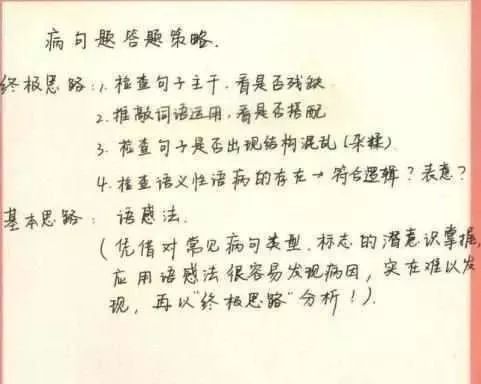 病句题答题策略.
终极思路:1. 检查句子主干,看是否残缺
2. 推敲词语运用,看是否搭配
3. 检查句子是否出现结构混乱(杂糅)
4. 检查语义性语病的存在→符合逻辑?表意?
基本思路: 语感法.
(凭借对常见病句类型.标志的潜意识掌握,
应用语感法很容易发现病因,实在难以发
现,再以"终极思路"分析!).